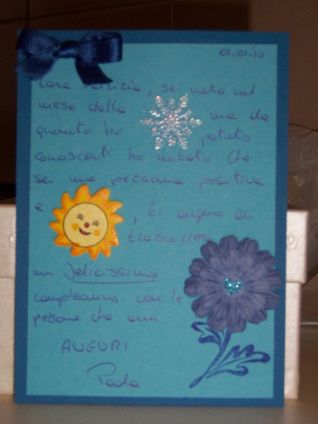 01.01.10
Cara Patrizia, sei nata nel
mese della ma da
quanto ho potuto
conoscerti ho notato che
sei una persona positiva
e , ti auguro di
trascorrere
un felicissimo
compleanno con le
persone che ami
AUGURI
Paola